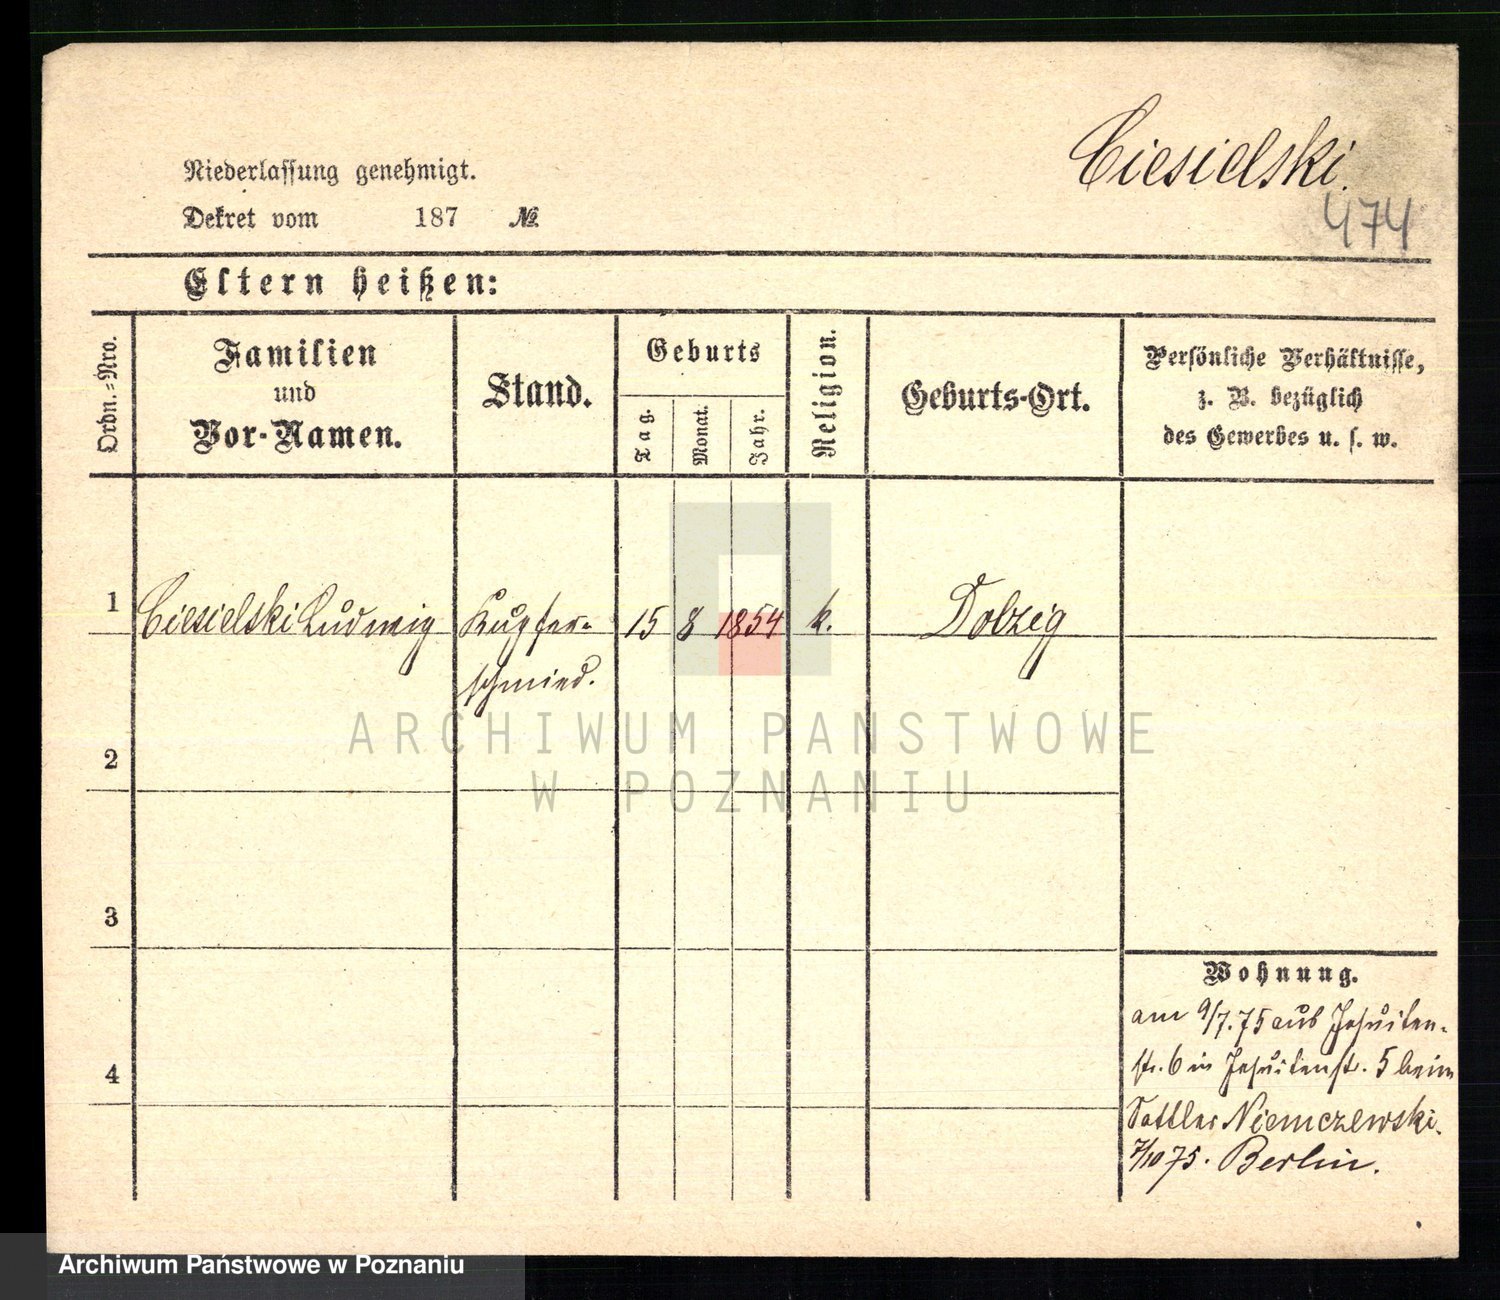 Ciesielski.
474
Niederlassung genehmigt.
Dekret vom 187 №
Eltern heißen:
Ordn.=Nro.
Familien
und
Vor-Namen.
Stand.
Geburts
Tag.
Monat.
Jahr.
Religion.
Geburts-Ort.
Persönliche Verhältnisse,
z. B. bezüglich
des Gewerbes u. s. w.
1 Ciesielski Ludwig Kupfer= 15 8 1854 k. Dolzig
schmied.
2
3
4
Wohnung.
am 9/7.75 aus Jesuiten-
str. 6 in Jesuitenstr. 5 beim
Sattler Niemczewski.
7/10 75. Berlin.
ARCHIWUM PANSTWOWE
W POZNANIU
Archiwum Państwowe w Poznaniu